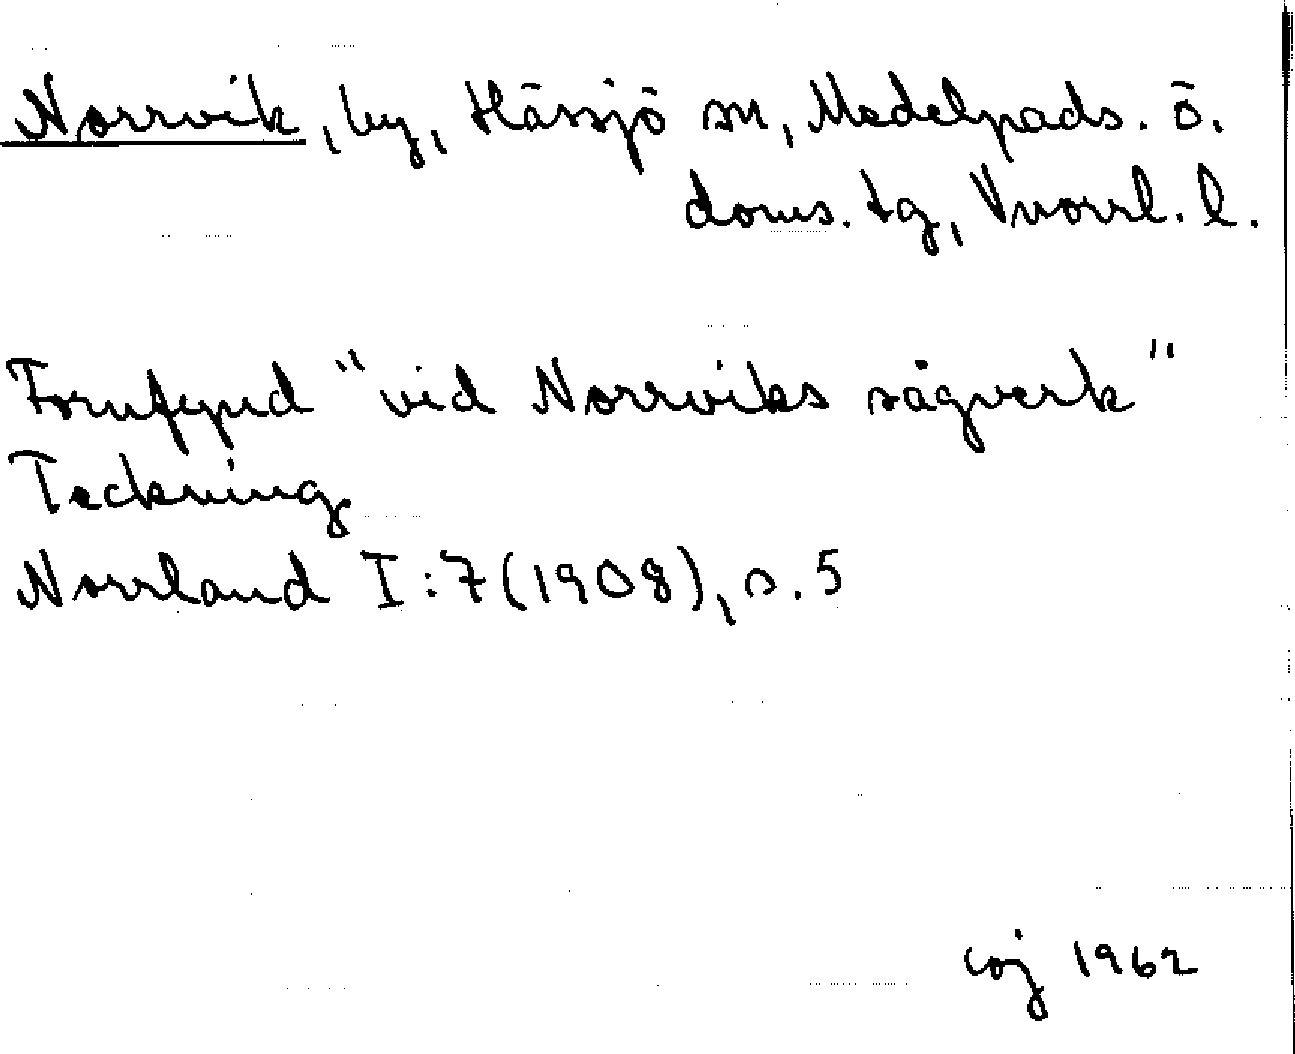 Norrvik, by, Hässjö sn, Medelpads. ö.
doms. tg, Vnorrl. l.
Fornfynd "vid Norrviks sågverk"
Teckning
Norrland I:7(1908), s. 5
coj 1962